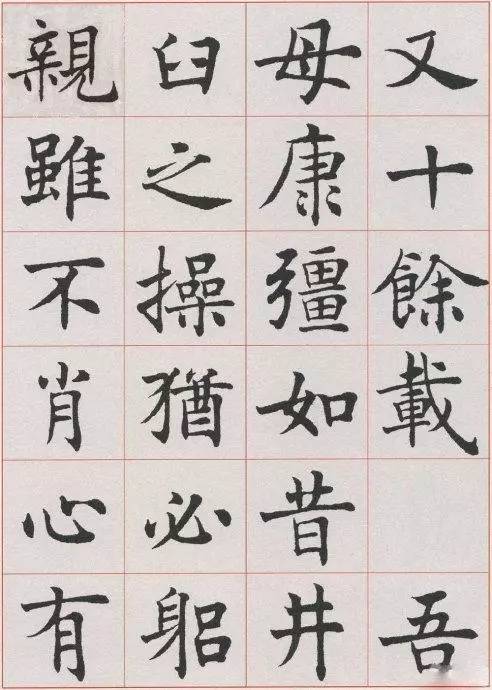 又十餘載　吾
母康彊如昔井
臼之操猶必躳
親雖不肖心有